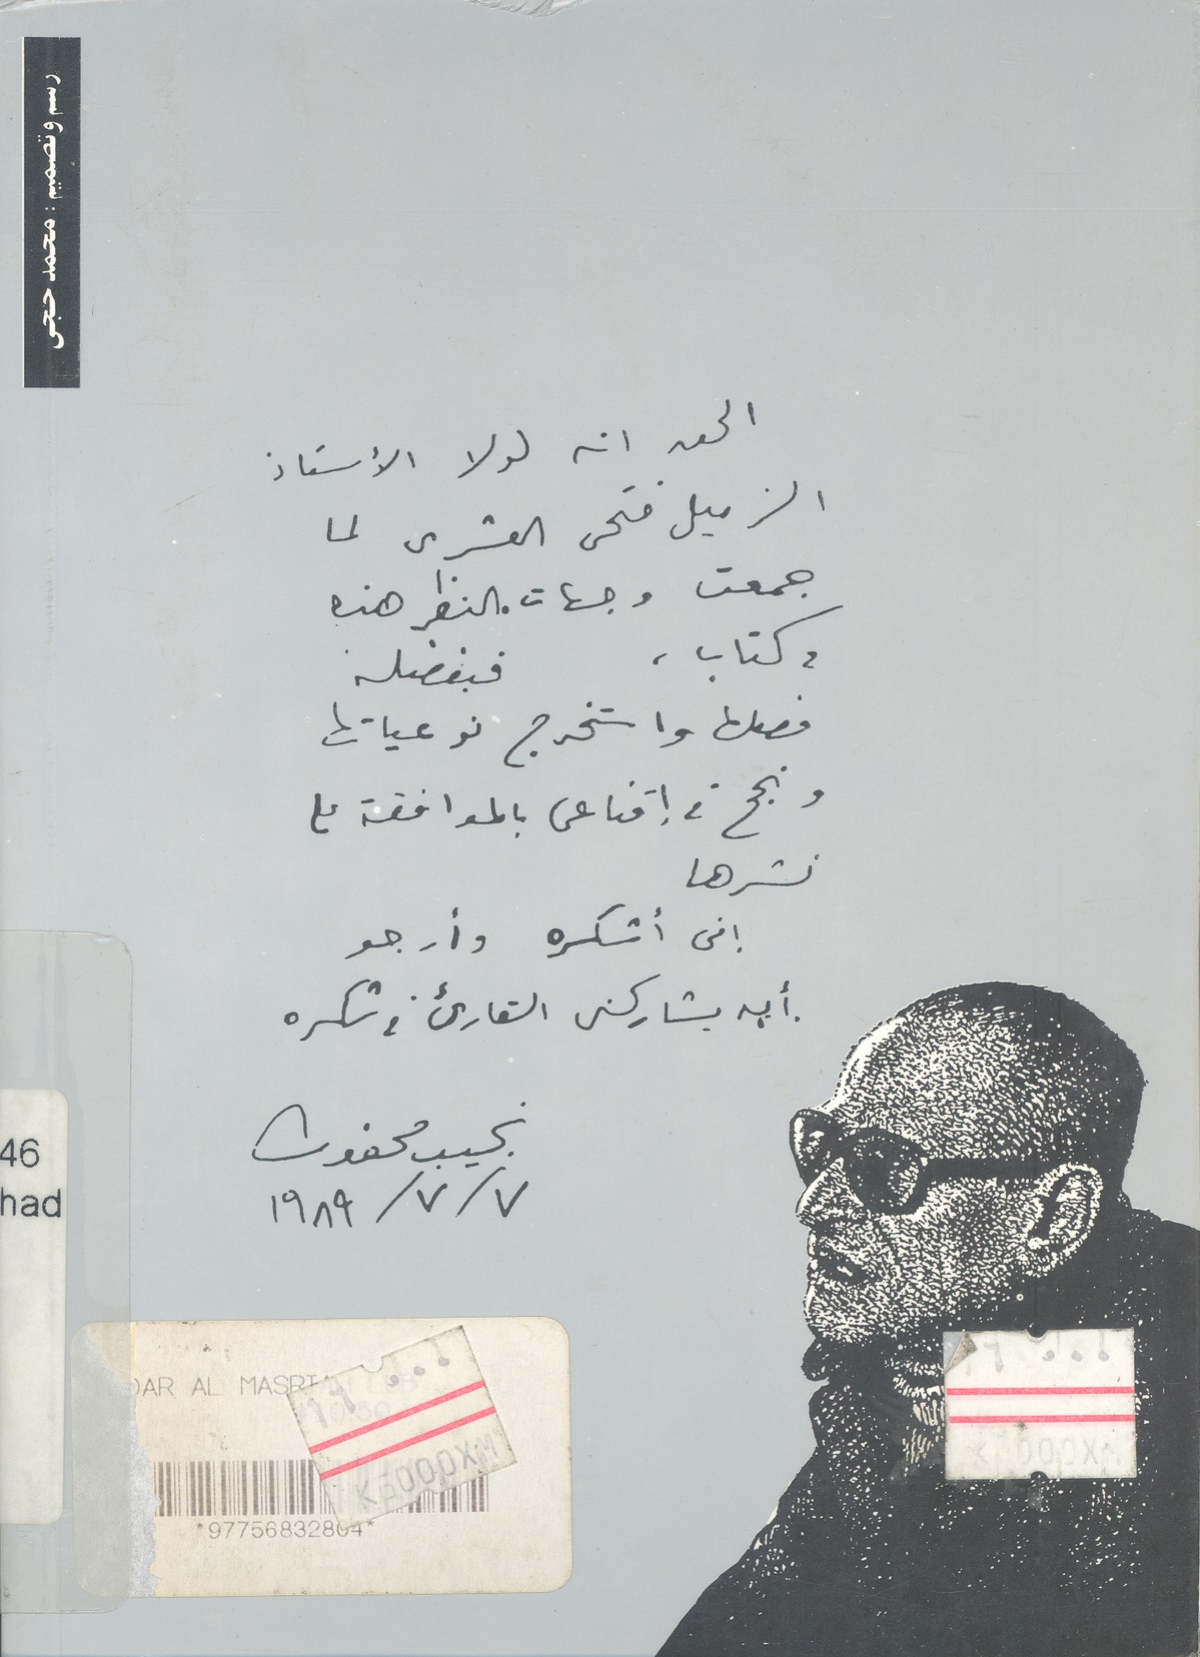 رسم وتصميم : محمد حجى
الحق انه لولا الأستاذ
الزميل فتحى العشرى لما
جمعت وجهات النظر هذه
فى كتاب ،    فبفضله
فصلها واستخرج نوعياتها
ونجح فى إقناعى بالموافقة على
نشرها
إنى أشكره وأرجو
أن يشاركنى القارئ فى شكره
نجيب محفوظ
٧/٧/١٩٨٩
46
had
DAR AL MASRI
*97756832804*